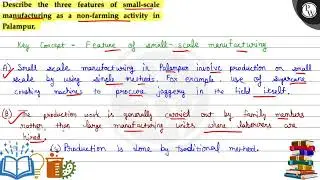 Describe the three features of small-scale
manufacturing as a non-farming activity in
Palampur.
Key Concept - Feature of small-scale manufacturing
(A) Small scale manufacturing in Palampur involve production on small
scale by using simple methods. For example use of sugarcane
crushing machines to procure jaggery in the field itself.
(B) The production work is generally carried out by family members
rather, than large manufacturing units where labourers are
hired.
(c) Production is done by traditional method.